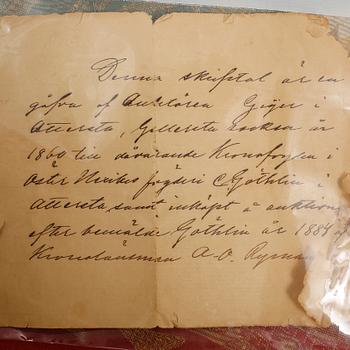 Denna skriftal är en
gåfva af Auditören Geijer i
Attersta, Gellersta socken år
1860 till dåvarande Kronofogden i
Öster Nerikes fögderi C Göthlin i
Attersta samt inköpt å auktion
efter bemälde Göthlin år 1884 af
Kronolänsman A. O. Ryman